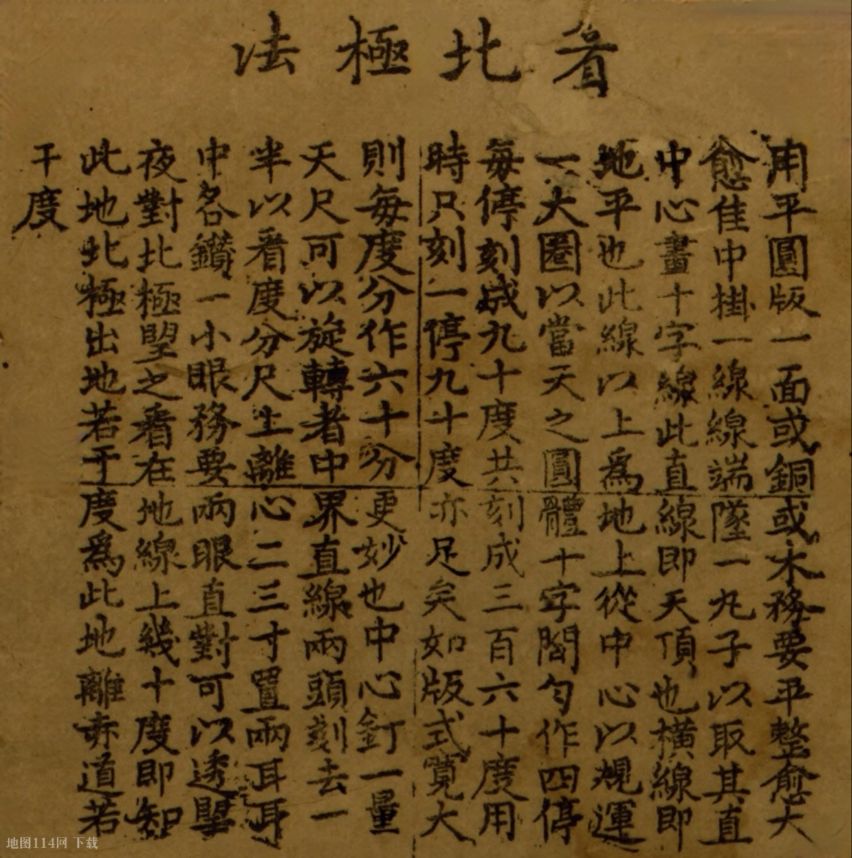 看北極法
用平圓版一面或銅或木務要平整愈大
愈佳中掛一線線端墜一丸子以取其直
中心畫十字線此直線即天頂也橫線即
地平也此線以上為地上從中心以規運
一大圈以當天之圓體十字間勻作四停
每停刻成九十度共刻成三百六十度用
時只刻一停九十度亦足矣如版式寬大
則每度分作六十分更妙也中心釘一量
天尺可以旋轉者中界直線兩頭刻去一
半以看度分尺上離心二三寸置兩耳耳
中各鑽一小眼務要兩眼直對可以透望
夜對北極望之看在地線上幾十度即知
此地北極出地若干度為此地離赤道若
干度
地图114网 下载